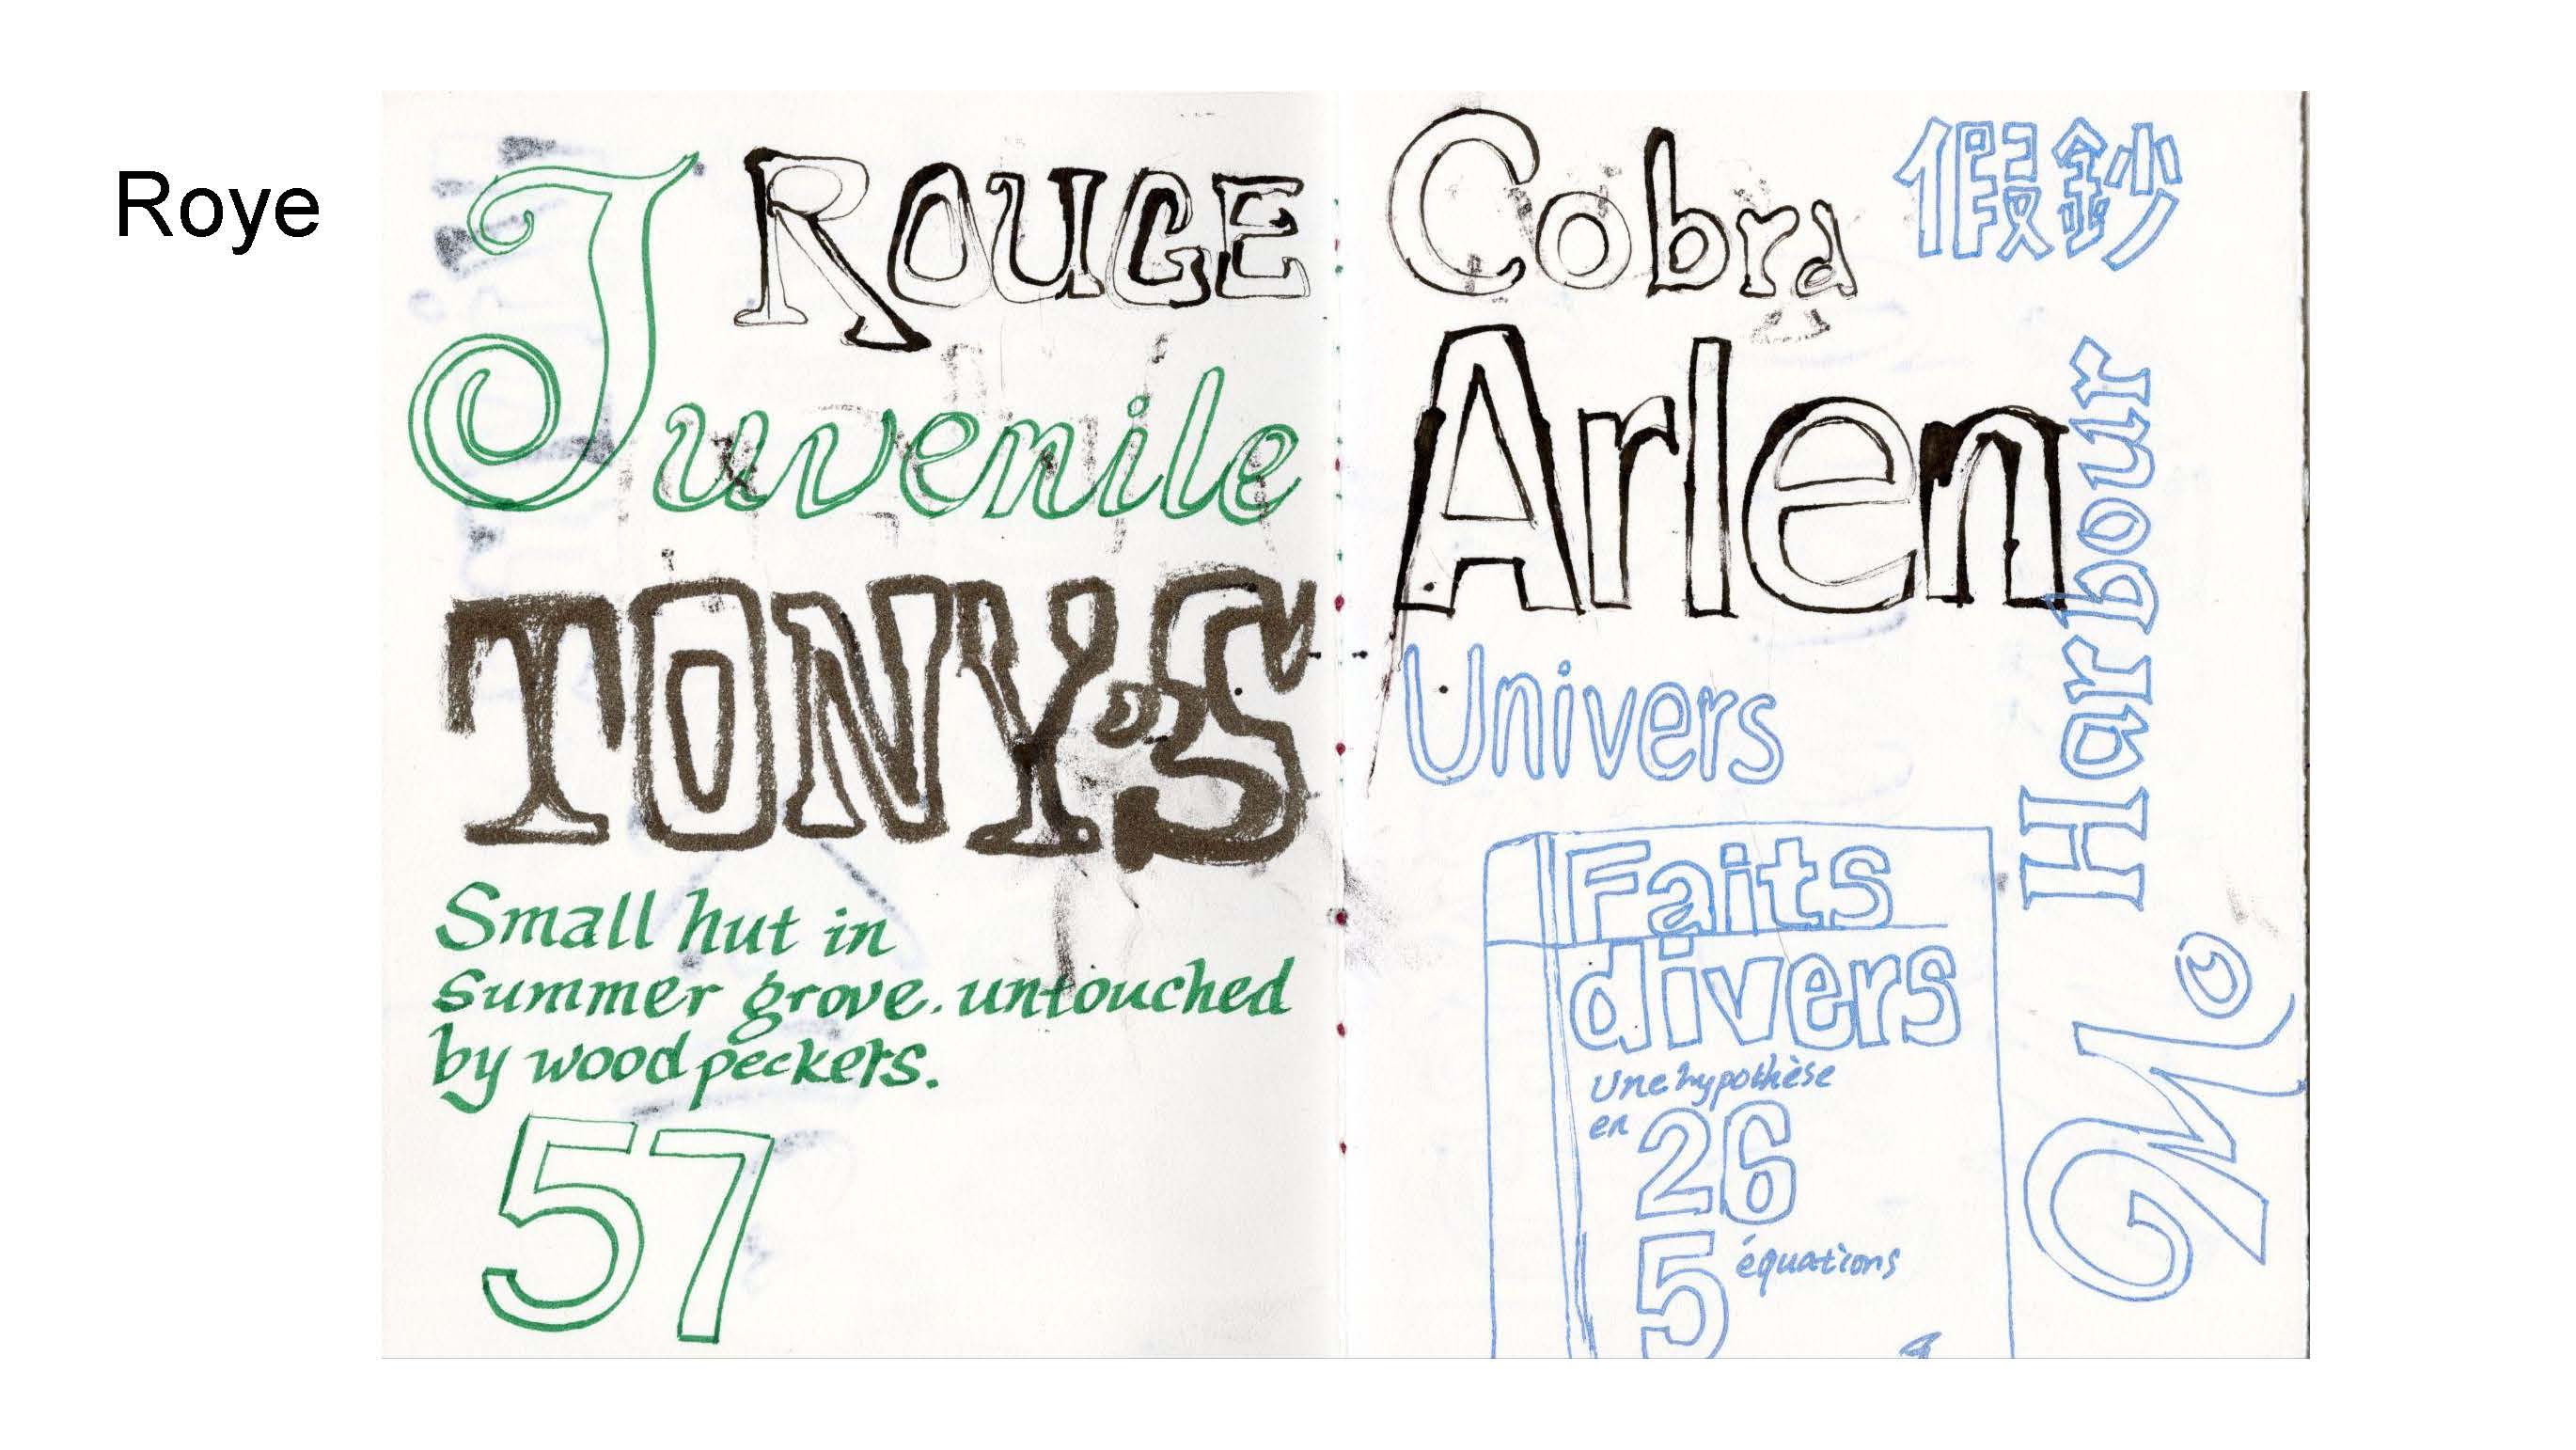 Roye
ROUGE
Juvenile
TONY'S
Small hut in
summer grove. untouched
by woodpeckers.
57
Cobra
假鈔
Arlen
Harbour
Univers
Faits
divers
Une hypothèse
en 26
5 équations
Mo